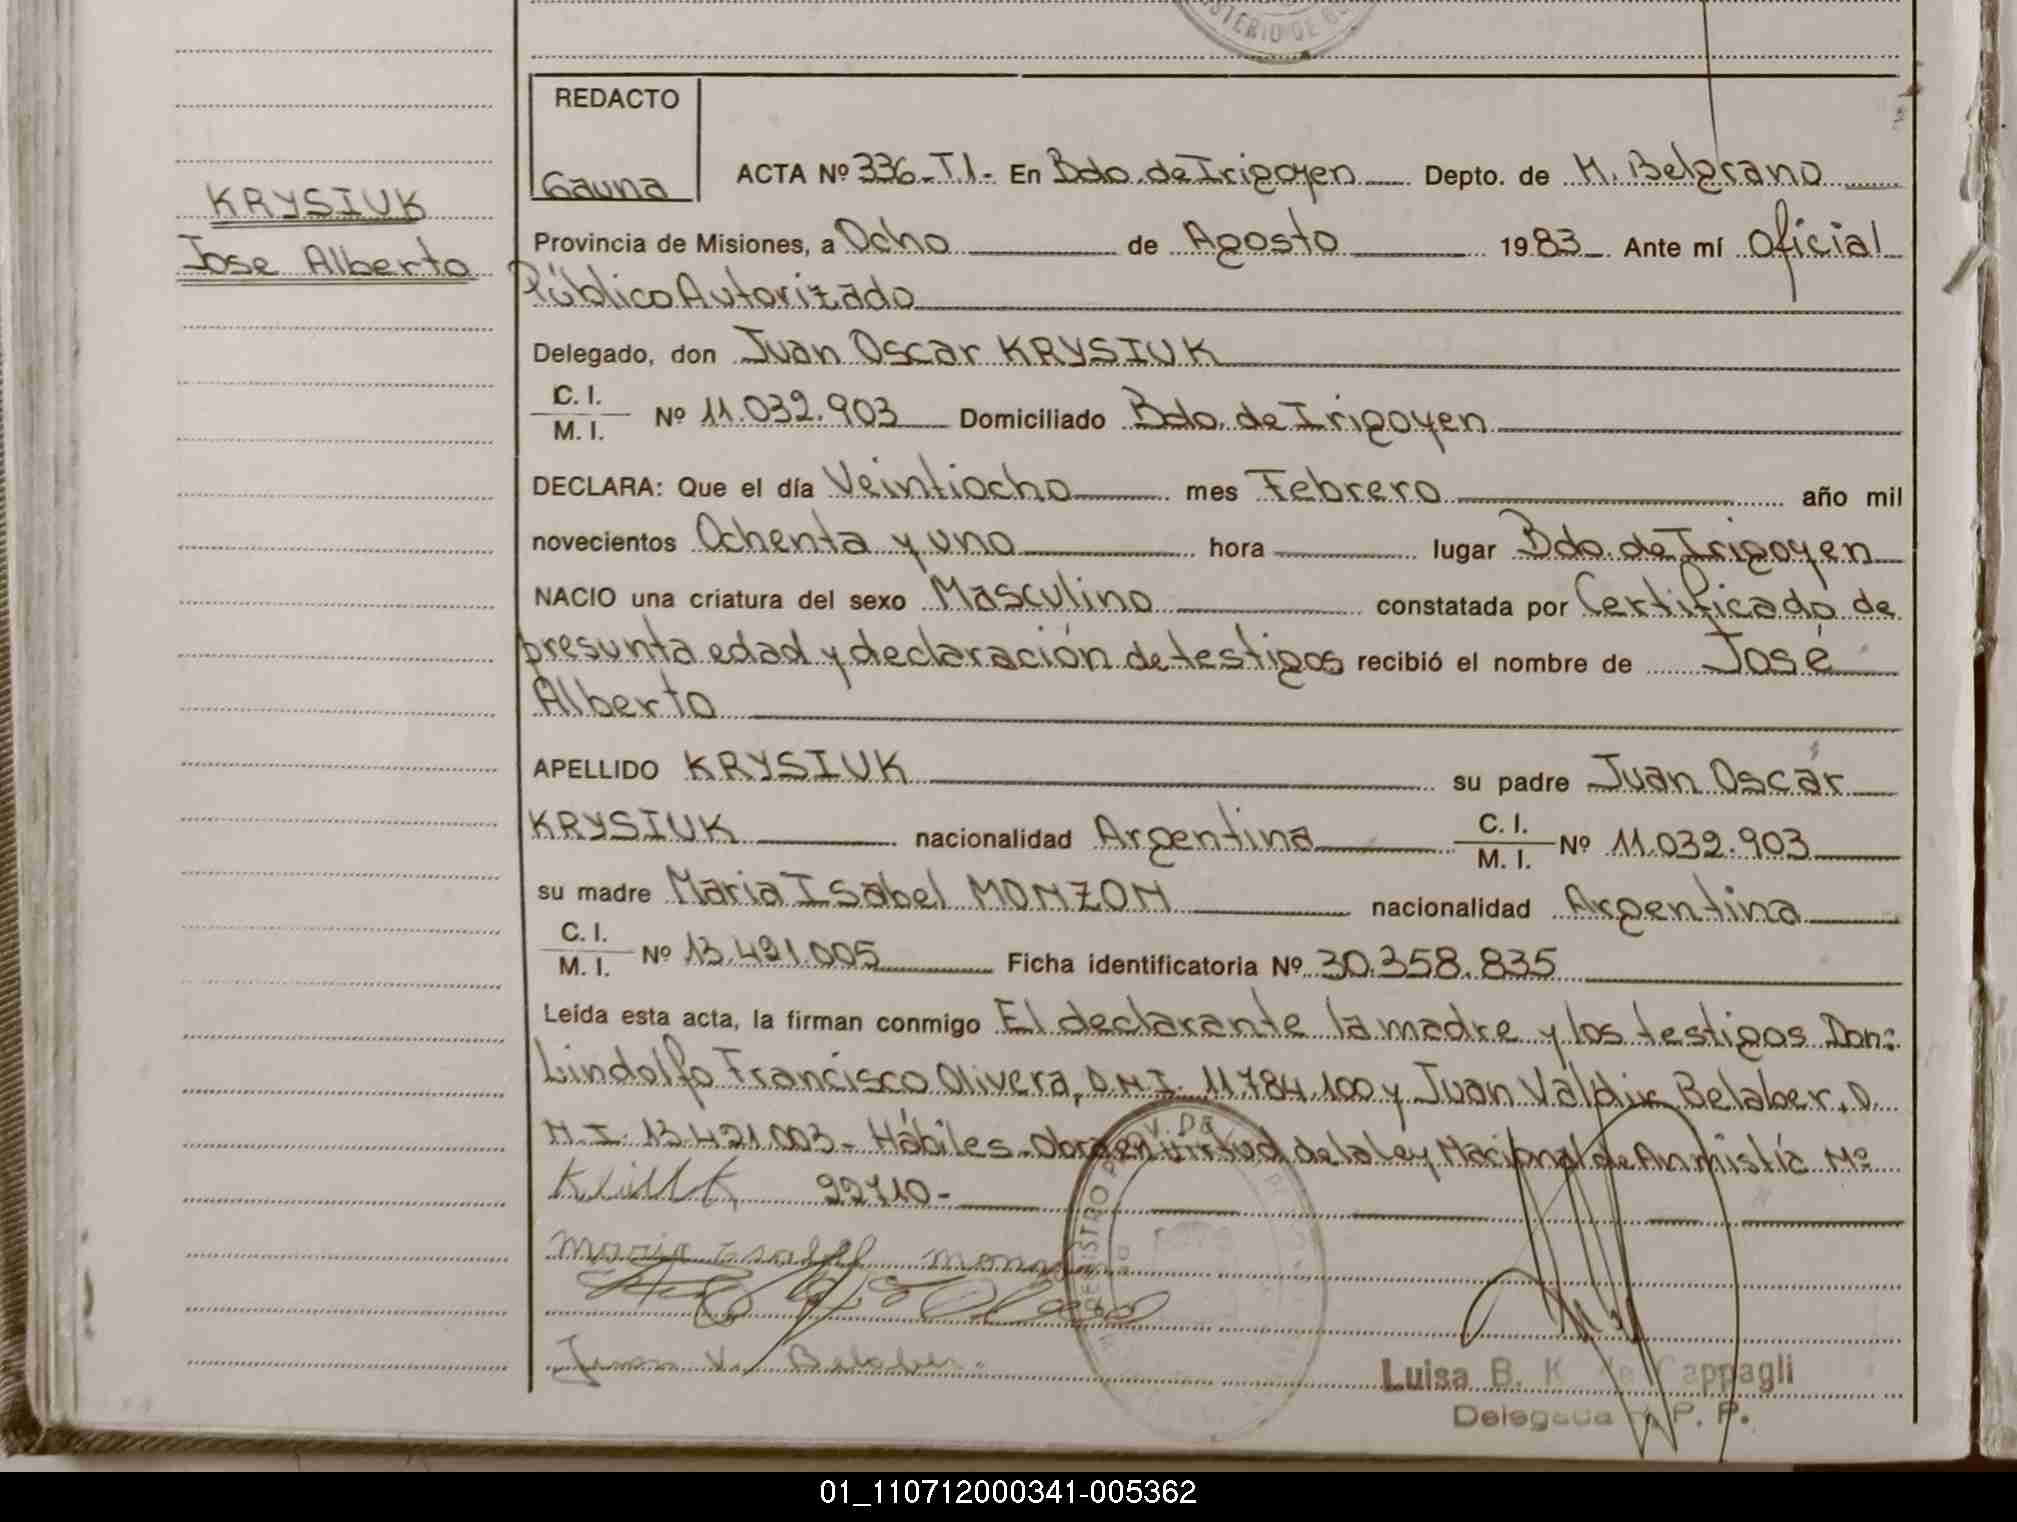 STERIO DE GO
REDACTO
Gauna
ACTA Nº 336-T.I.- En Bdo. de Irigoyen Depto. de M. Belgrano
KRYSIUK
Jose Alberto
Provincia de Misiones, a Ocho de Agosto 1983 Ante mí Oficial
Público Autorizado
Delegado, don Juan Oscar KRYSIUK
C. I.
M. I.
Nº 11.032.903 Domiciliado Bdo. de Irigoyen
DECLARA: Que el día Veintiocho mes Febrero año mil
novecientos Ochenta y uno hora lugar Bdo. de Irigoyen
NACIO una criatura del sexo Masculino constatada por Certificado de
presunta edad y declaración de testigos recibió el nombre de José
Alberto
APELLIDO KRYSIUK su padre Juan Oscar
KRYSIUK nacionalidad Argentina C. I.
M. I. Nº 11.032.903
su madre Maria Isabel MONZON nacionalidad Argentina
C. I.
M. I.
Nº 13.421.005 Ficha identificatoria Nº 30.358.835
Leida esta acta, la firman conmigo El declarante la madre y los testigos Don:
Lindolfo Francisco Olivera, D.N.I. 11.784.100 y Juan Valdir Belaber, D.
N.I. 13.421.003- Hábiles- Obra en virtud de la ley Nacional de Anmistía Nº
22710-
Maria Isabel
Juan V. Belaber
Luisa B. K de Cappagli
Delegada R. P. P.
01_110712000341-005362